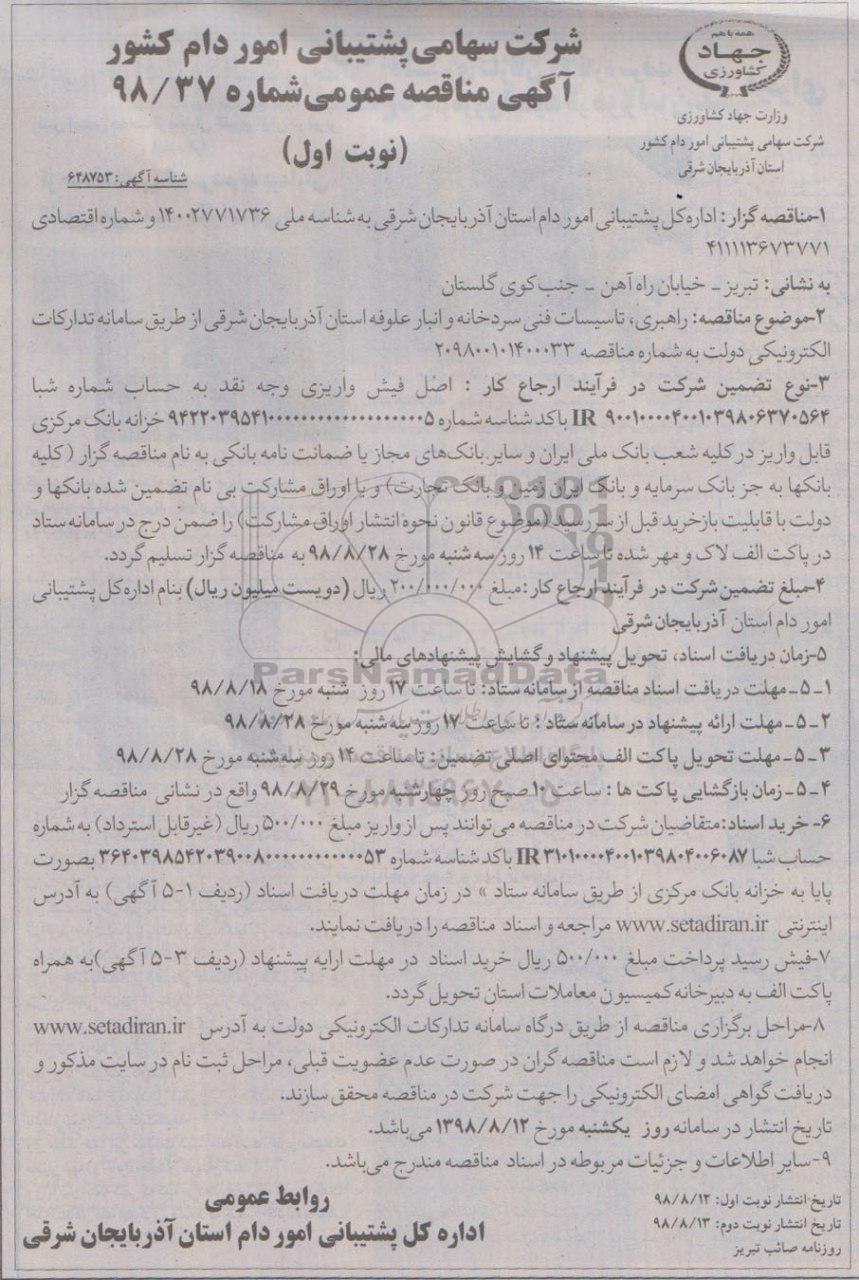 همه با هم
جهاد
کشاورزی
وزارت جهاد کشاورزی
شرکت سهامی پشتیبانی امور دام کشور
استان آذربایجان شرقی
شرکت سهامی پشتیبانی امور دام کشور
آگهی مناقصه عمومی شماره ۹۸/۳۷
(نوبت اول)
شناسه آگهی: ۶۴۸۷۵۳
۱-مناقصه گزار: اداره کل پشتیبانی امور دام استان آذربایجان شرقی به شناسه ملی ۱۴۰۰۲۷۷۱۷۳۶ و شماره اقتصادی
۴۱۱۱۱۳۶۷۳۷۷۱
به نشانی: تبریز - خیابان راه آهن - جنب کوی گلستان
۲-موضوع مناقصه: راهبری، تاسیسات فنی سردخانه و انبار علوفه استان آذربایجان شرقی از طریق سامانه تدارکات
الکترونیکی دولت به شماره مناقصه ۲۰۹۸۰۰۱۰۱۴۰۰۰۳۳
۳-نوع تضمین شرکت در فرآیند ارجاع کار : اصل فیش واریزی وجه نقد به حساب شماره شبا
IR ۹۰۰۱۰۰۰۰۴۰۰۱۰۳۹۸۰۶۳۷۰۵۶۴ با کد شناسه شماره خزانه بانک مرکزی
قابل واریز در کلیه شعب بانک ملی ایران و سایر بانک‌های مجاز یا ضمانت نامه بانکی به نام مناقصه گزار (کلیه
بانکها به جز بانک سرمایه و بانک ایران زمین و بانک تجارت) و یا اوراق مشارکت بی نام تضمین شده بانکها و
دولت با قابلیت بازخرید قبل از سررسید (موضوع قانون نحوه انتشار اوراق مشارکت) را ضمن درج در سامانه ستاد
در پاکت الف لاک و مهر شده تا ساعت ۱۴ روز سه شنبه مورخ ۹۸/۸/۲۸ به مناقصه گزار تسلیم گردد.
۴-مبلغ تضمین شرکت در فرآیند ارجاع کار: مبلغ ۲۰۰/۰۰۰/۰۰۰ ریال (دویست میلیون ریال) بنام اداره کل پشتیبانی
امور دام استان آذربایجان شرقی
۵-زمان دریافت اسناد، تحویل پیشنهاد و گشایش پیشنهادهای مالی:
۱-۵- مهلت دریافت اسناد مناقصه از سامانه ستاد: تا ساعت ۱۷ روز شنبه مورخ ۹۸/۸/۱۸
۲-۵- مهلت ارائه پیشنهاد در سامانه ستاد : تا ساعت ۱۷ روز سه شنبه مورخ ۹۸/۸/۲۸
۳-۵- مهلت تحویل پاکت الف محتوای اصلی تضمین: تا ساعت ۱۴ روز سه شنبه مورخ ۹۸/۸/۲۸
۴-۵- زمان بازگشایی پاکت ها : ساعت ۱۰ صبح روز چهارشنبه مورخ ۹۸/۸/۲۹ واقع در نشانی مناقصه گزار
۶- خرید اسناد: متقاضیان شرکت در مناقصه می‌توانند پس از واریز مبلغ ۵۰۰/۰۰۰ ریال (غیرقابل استرداد) به شماره
حساب شبا IR ۳۱۰۱۰۰۰۰۴۰۰۱۰۳۹۸۰۴۰۰۶۰۸۷ با کد شناسه شماره بصورت
پایا به خزانه بانک مرکزی از طریق سامانه ستاد » در زمان مهلت دریافت اسناد (ردیف ۱-۵ آگهی) به آدرس
اینترنتی www.setadiran.ir مراجعه و اسناد مناقصه را دریافت نمایند.
۷-فیش رسید پرداخت مبلغ ۵۰۰/۰۰۰ ریال خرید اسناد در مهلت ارایه پیشنهاد (ردیف ۳-۵ آگهی) به همراه
پاکت الف به دبیرخانه کمیسیون معاملات استان تحویل گردد.
۸-مراحل برگزاری مناقصه از طریق درگاه سامانه تدارکات الکترونیکی دولت به آدرس www.setadiran.ir
انجام خواهد شد و لازم است مناقصه گران در صورت عدم عضویت قبلی، مراحل ثبت نام در سایت مذکور و
دریافت گواهی امضای الکترونیکی را جهت شرکت در مناقصه محقق سازند.
تاریخ انتشار در سامانه روز یکشنبه مورخ ۱۳۹۸/۸/۱۲ می‌باشد.
۹-سایر اطلاعات و جزئیات مربوطه در اسناد مناقصه مندرج می‌باشد.
تاریخ انتشار نوبت اول: ۹۸/۸/۱۲
تاریخ انتشار نوبت دوم: ۹۸/۸/۱۳
روزنامه صائب تبریز
روابط عمومی
اداره کل پشتیبانی امور دام استان آذربایجان شرقی
ParsNamadData